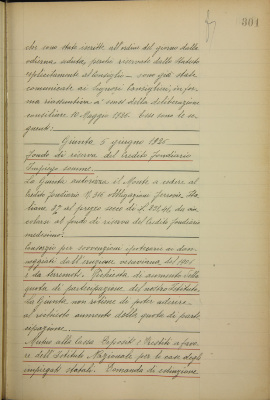 301
che sono state iscritte all'ordine del giorno della
odierna seduta, perchè riservate dallo Statuto
esplicitamente al Consiglio – sono già state
comunicate ai Signori Consiglieri, in for-
ma riassuntiva a' sensi della deliberazione
consiliare 10 Maggio 1920. Esse sono le se-
guenti:
Giunta 5 giugno 1920.
Fondo di riserva del Credito Fondiario
Impiego somme.
La Giunta autorizza il Monte a cedere al
Credito Fondiario N. obbligazioni ferrovie Ita
liane 3% al prezzo di L. da in-
vestire al fondo di riserva del Credito Fondiario
medesimo.
Consorzio per sovvenzioni ipotecarie ai dan-
neggiati dall'eruzione vesuviana del 1906
e da terremoti. Richiesta di aumento della
quota di partecipazione del nostro Istituto.
La Giunta non ritiene di poter aderire
al richiesto aumento della quota di parte
cipazione.
Mutuo alla Cassa Depositi e Prestiti a favo-
re dell'Istituto Nazionale per le case degli
impiegati statali. Domanda di estinzione